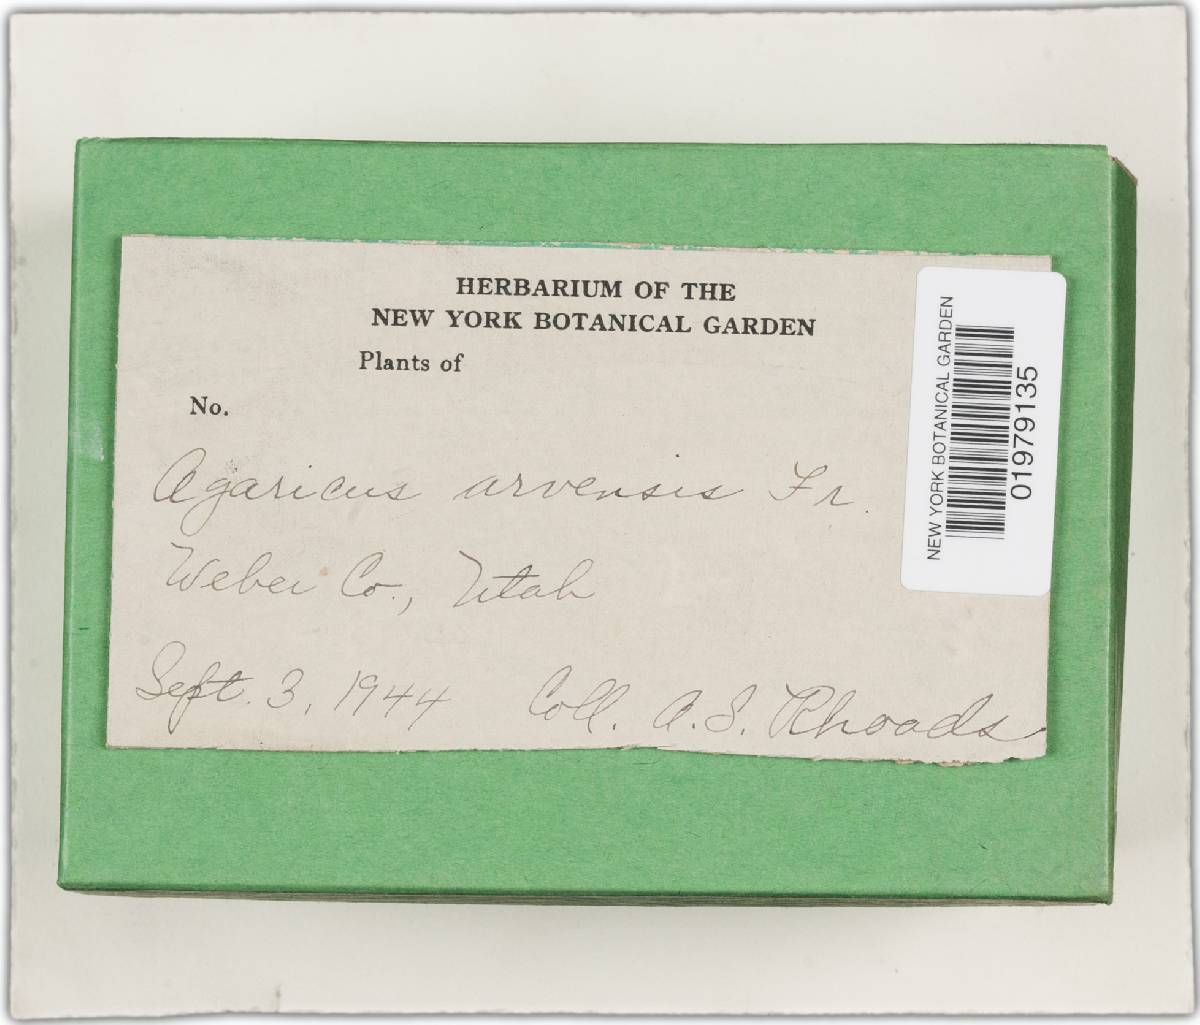 HERBARIUM OF THE
NEW YORK BOTANICAL GARDEN
Plants of
No.
Agaricus arvensis Fr.
Weber Co., Utah
Sept. 3, 1944 Coll. A. S. Rhoads
NEW YORK BOTANICAL GARDEN
01979135